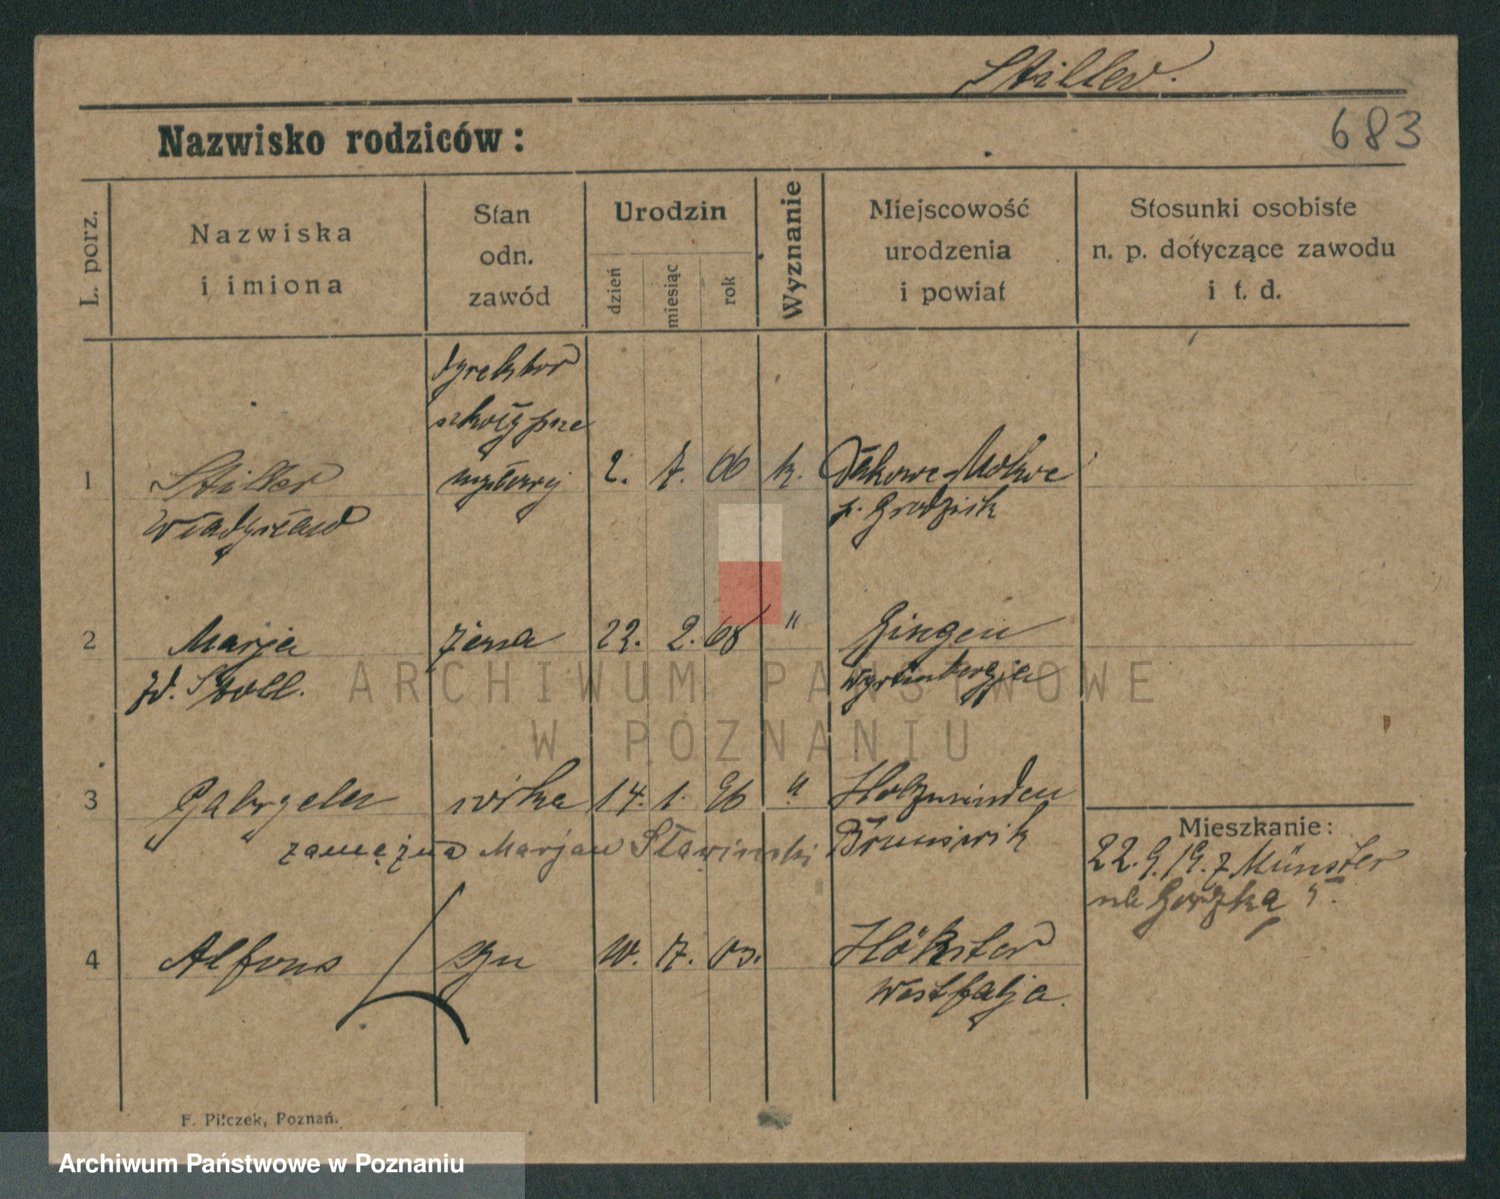 Stiller.
683
Nazwisko rodziców:
L. porz.
Nazwiska
i imiona
Stan
odn.
zawód
Urodzin
dzień
miesiąc
rok
Wyznanie
Miejscowość
urodzenia
i powiat
Stosunki osobiste
n. p. dotyczące zawodu
i t. d.
dyrektor
szkoły prze
mysłowej
1 Stiller 2. 7. 66 k.
Władysław p. Grodzisk
2 Marja żona 22. 2. 68 " Gingen
zd. Stoll. Wyrtembergja
3 córka 14. 1. 96 " Holzminden
zamężna Marjan Sławinski Brunświk
Mieszkanie:
22. 9. 19. z Münster
4 Alfons syn 10. 7. 03. Hökster
Westfalja.
F. Pilczek, Poznań.
ARCHIWUM PAŃSTWOWE
W POZNANIU
Archiwum Państwowe w Poznaniu